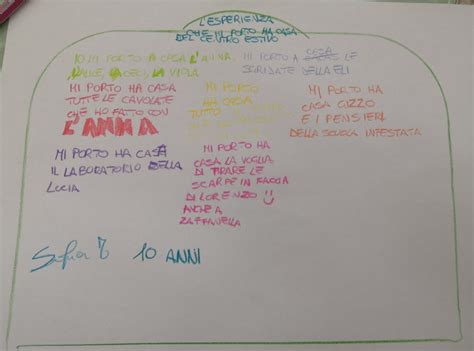 L'ESPERIENZA
CHE MI PORTO HA CASA
DEL CENTRO ESTIVO
IO MI PORTO A CASA L'ANNA,
LA CECI, LA VIOLA
MI PORTO A CASA LE
SGRIDATE DELLA ELI
MI PORTO HA CASA
TUTTE LE CAVOLATE
CHE HO FATTO CON
L'ANNA
MI PORTO
HA CASA
TUTTO
MI PORTO HA
CASA GIZZO
E I PENSIERI
DELLA SCUOLA INFESTATA
MI PORTO HA CASA
IL LABORATORIO DELLA
LUCIA
MI PORTO HA
CASA LA VOGLIA
DI TIRARE LE
SCARPE IN FACCIA
DI LORENZO
ANCHE A
ZAFFANELLA
10 ANNI